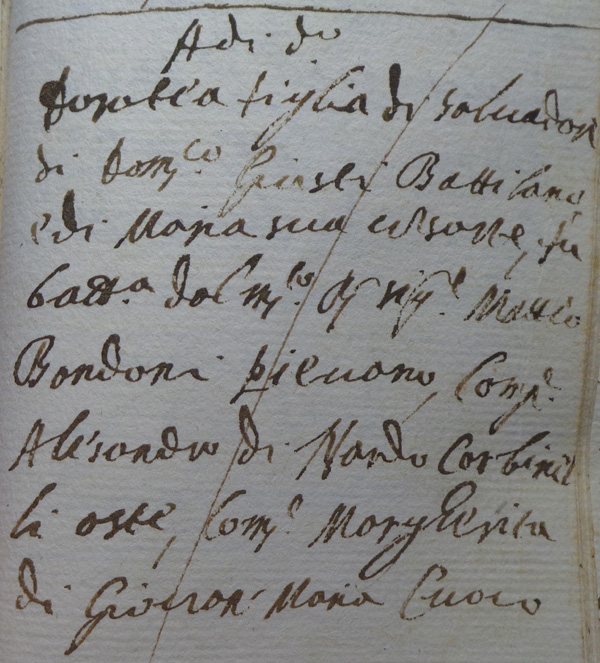 Adi do
Dorotea figlia di Salvadore
di Dom.co Giusti Battilano,
e di Maria sua consorte, fu
batt.a dal m.to Matteo
Bondoni pievano, Comp.e
Alesandro di Nardo Corbinel
li oste, Com.e Margherita
di Giovan Maria Cuoco